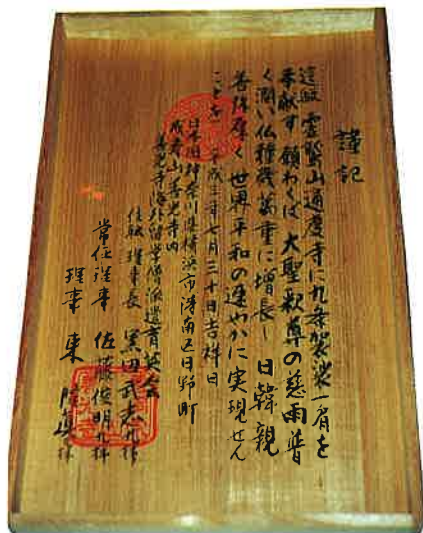 謹記
這般 霊鷲山通度寺に九条袈裟一肩を
奉献す 願わくば 大聖釈尊の慈雨普
く潤い仏種茂万重に増長し 日韓親
善弥厚く 世界平和の速やかに実現せん
ことを 平成三年七月三十日吉祥日
日本国神奈川県横浜市港南区日野町
成寿山善光寺内
善光寺海外留学僧派遣育英会
住職 理事長 黒田武志九拝
常任理事 佐藤俊明九拝
理事 東 隆眞拝